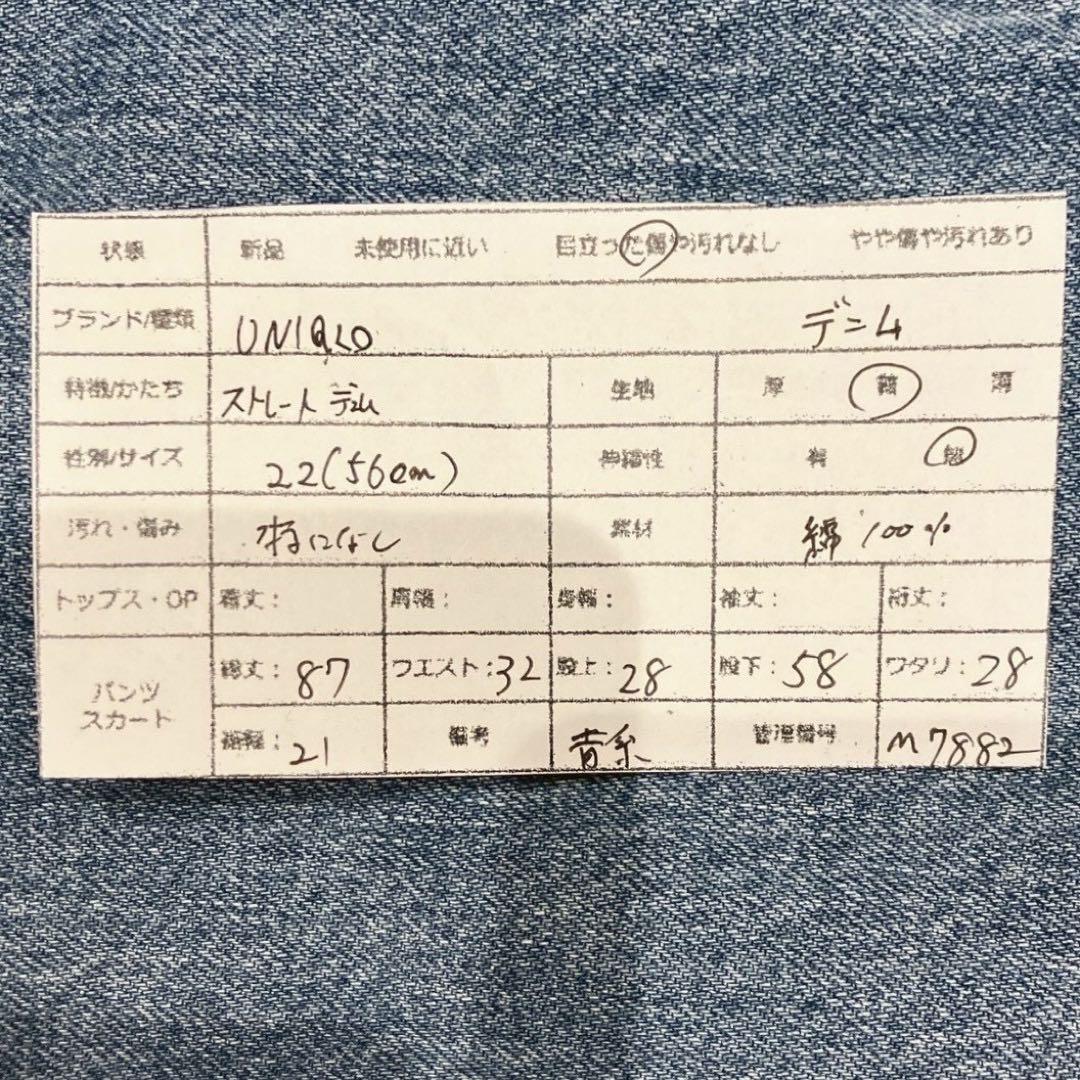 状態 新品 未使用に近い 目立った傷や汚れなし やや傷や汚れあり
ブランド/種類 UNIQLO デニム
特徴/かたち ストレートデニム 生地 厚 普 薄
性別/サイズ 22(56cm) 伸縮性 有 無
汚れ・傷み 特になし 素材 綿100%
トップス・OP 着丈: 肩幅: 身幅: 袖丈: 裄丈:
パンツ スカート 総丈:87 ウエスト:32 股上:28 股下:58 ワタリ:28
裾幅:21 備考 青系 管理番号 M7882